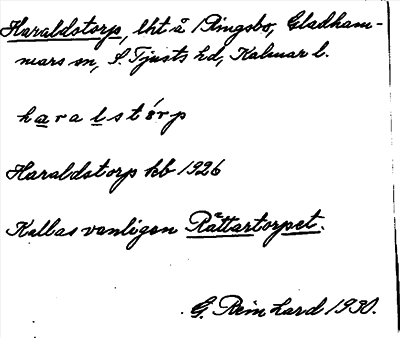 Haraldstorp, lht å Ringsbo, Gladham-
mars sn, S. Tjusts hd, Kalmar l.
haralstórp
Haraldstorp kb 1926
Kallas vanligen Råttartorpet.
G. Reinhard 1930.